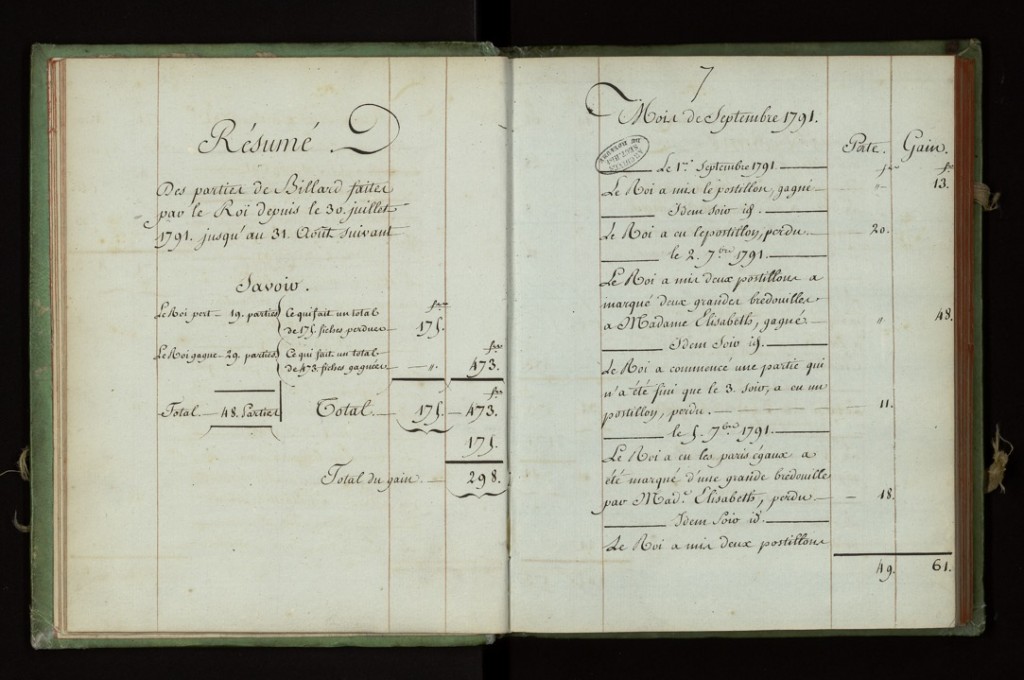 Résumé
Des parties de Billard faites
par le Roi depuis le 30. juillet
1791. jusqu'au 31. Août suivant
Savoir.
fes
Le Roi pert — 19. parties Ce qui fait un total
de 175. fiches perdues — 175.
fes
Le Roi gagne — 29. parties Ce qui fait un total
de 473 fiches gagnées — ". 473.
fes
Total — 48. Parties Total — 175. — 473.
175.
Total du gain. — 298.
7
Mois de Septembre 1791.
Perte. Gain.
Le 1er Septembre 1791. fes fes
Le Roi a mis le postillon, gagné — " 13.
Idem Soir id.
Le Roi a eu le postillon, perdu. — 20.
le 2. 7bre 1791.
Le Roi a mis deux postillons a
marqué deux grandes bredouilles
a Madame Elisabeth, gagné — " 48.
Idem Soir id.
Le Roi a commencé une partie qui
n'a été fini que le 3. soir, a eu un
postillon, perdu. — 11.
le 5. 7bre 1791.
Le Roi a eu les paris égaux a
été marqué d'une grande bredouille
par Mad.e Elisabeth, perdu — 18.
Idem Soir id.
Le Roi a mis deux postillons
49. 61.